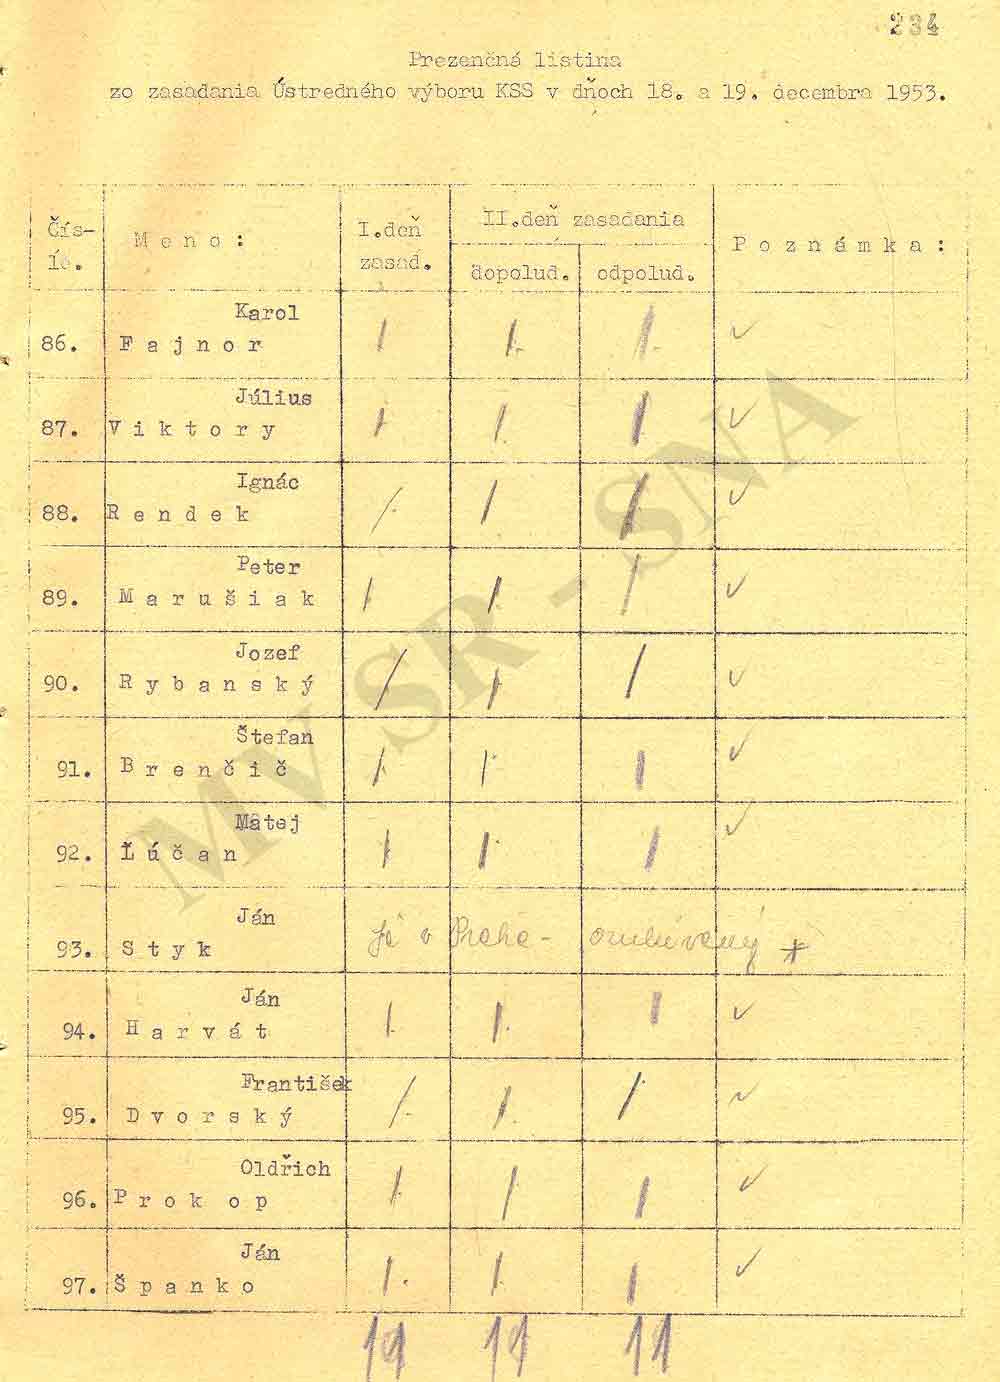 234
Prezenčná listina
zo zasadania Ústredného výboru KSS v dňoch 18. a 19. decembra 1953.
Čís-
lo.
Meno:
I.deň
zasad.
II.deň zasadania
dopolud.
odpolud.
Poznámka:
Karol
86. Fajnor / / / ✓
Július
87. Viktory / / / ✓
Ignác
88. Rendek / / / ✓
Peter
89. Marušiak / / / ✓
Jozef
90. Rybanský / / / ✓
Štefan
91. Brenčič / / / ✓
Matej
92. Lúčan / / / ✓
Ján
93. Styk je v Prahe -
Ján
94. Harvát / / / ✓
František
95. Dvorský / / / ✓
Oldřich
96. Prokop / / / ✓
Ján
97. Španko / / / ✓
11 11
MV SR - SNA